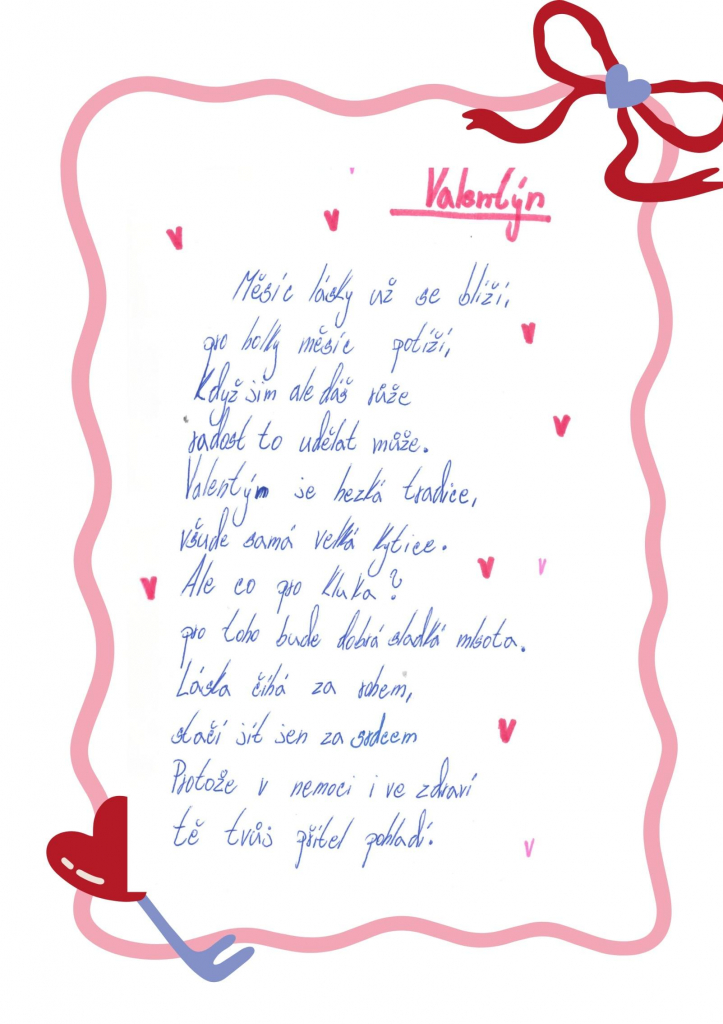 Valentýn
Měsíc lásky už se blíží,
pro holky měsíc potíží,
Když jim ale dáš růže
radost to udělat může.
Valentýn je hezká tradice,
všude samá velká kytice.
Ale co pro kluka?
pro toho bude dobrá sladká mlsota.
Láska číhá za rohem,
stačí jít jen za srdcem
Protože v nemoci i ve zdraví
tě tvůj přítel pohladí.